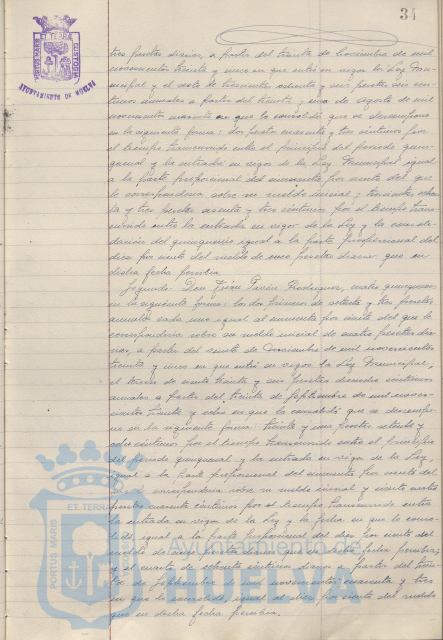 34
ET TERRÆ CUSTODIA
PORTUS MARIS
AYUNTAMIENTO DE HUELVA
tres pesetas diarias, a partir del treinta de Noviembre de mil
novecientos treinta y uno en que entró en vigor la Ley Mu-
nicipal y el resto de trescientas ochenta y seis pesetas seis cén-
timos anuales a partir del treinta y uno de agosto de mil
novecientos cuarenta en que lo consolidó que se descompone
en la siguiente forma: dos pesetas cuarenta y tres céntimos por
el tiempo transcurrido entre el principio del periodo quin-
quenal y la entrada en vigor de la Ley Municipal igual
a la parte proporcional del cincuenta por ciento del que
le correspondería sobre su sueldo inicial; trescientas ochen-
ta y tres pesetas sesenta y tres céntimos por el tiempo trans-
currido entre la entrada en vigor de la Ley y la consoli-
dación del quinquenio igual a la parte proporcional del
diez por ciento del sueldo de once pesetas diarias que en
dicha fecha percibía.
Segundo: Don Rodríguez, cuatro quinquenios
en la siguiente forma: los dos primeros de setenta y tres pesetas
anuales cada uno igual al aumento por ciento del que le
correspondería sobre su sueldo inicial de cuatro pesetas dia-
rias, a partir del veinte de Diciembre de mil novecientos
treinta y uno en que entró en vigor la Ley Municipal,
el tercero de ciento treinta y seis pesetas céntimos
anuales a partir del treinta de Septiembre de mil nove-
cientos treinta y ocho en que lo consolidó que se descompo-
ne en la siguiente forma: treinta y una pesetas setenta y
ocho céntimos por el tiempo transcurrido entre el principio
del periodo quinquenal y la entrada en vigor de la Ley
igual a la parte proporcional del cincuenta por ciento del
que le correspondería sobre su sueldo inicial y ciento cuatro
pesetas cuarenta céntimos por el tiempo transcurrido entre
la entrada en vigor de la Ley y la fecha en que lo conso-
lidó igual a la parte proporcional del diez por ciento del
sueldo de pesetas diarias que en dicha fecha percibía;
y el cuarto de ochenta céntimos diarios a partir del trein-
ta de Septiembre de mil novecientos cuarenta y tres
en que lo consolidó, igual al diez por ciento del sueldo
que en dicha fecha percibía.
ET TERRÆ
PORTUS MARIS
Ayuntamiento de
HUELVA